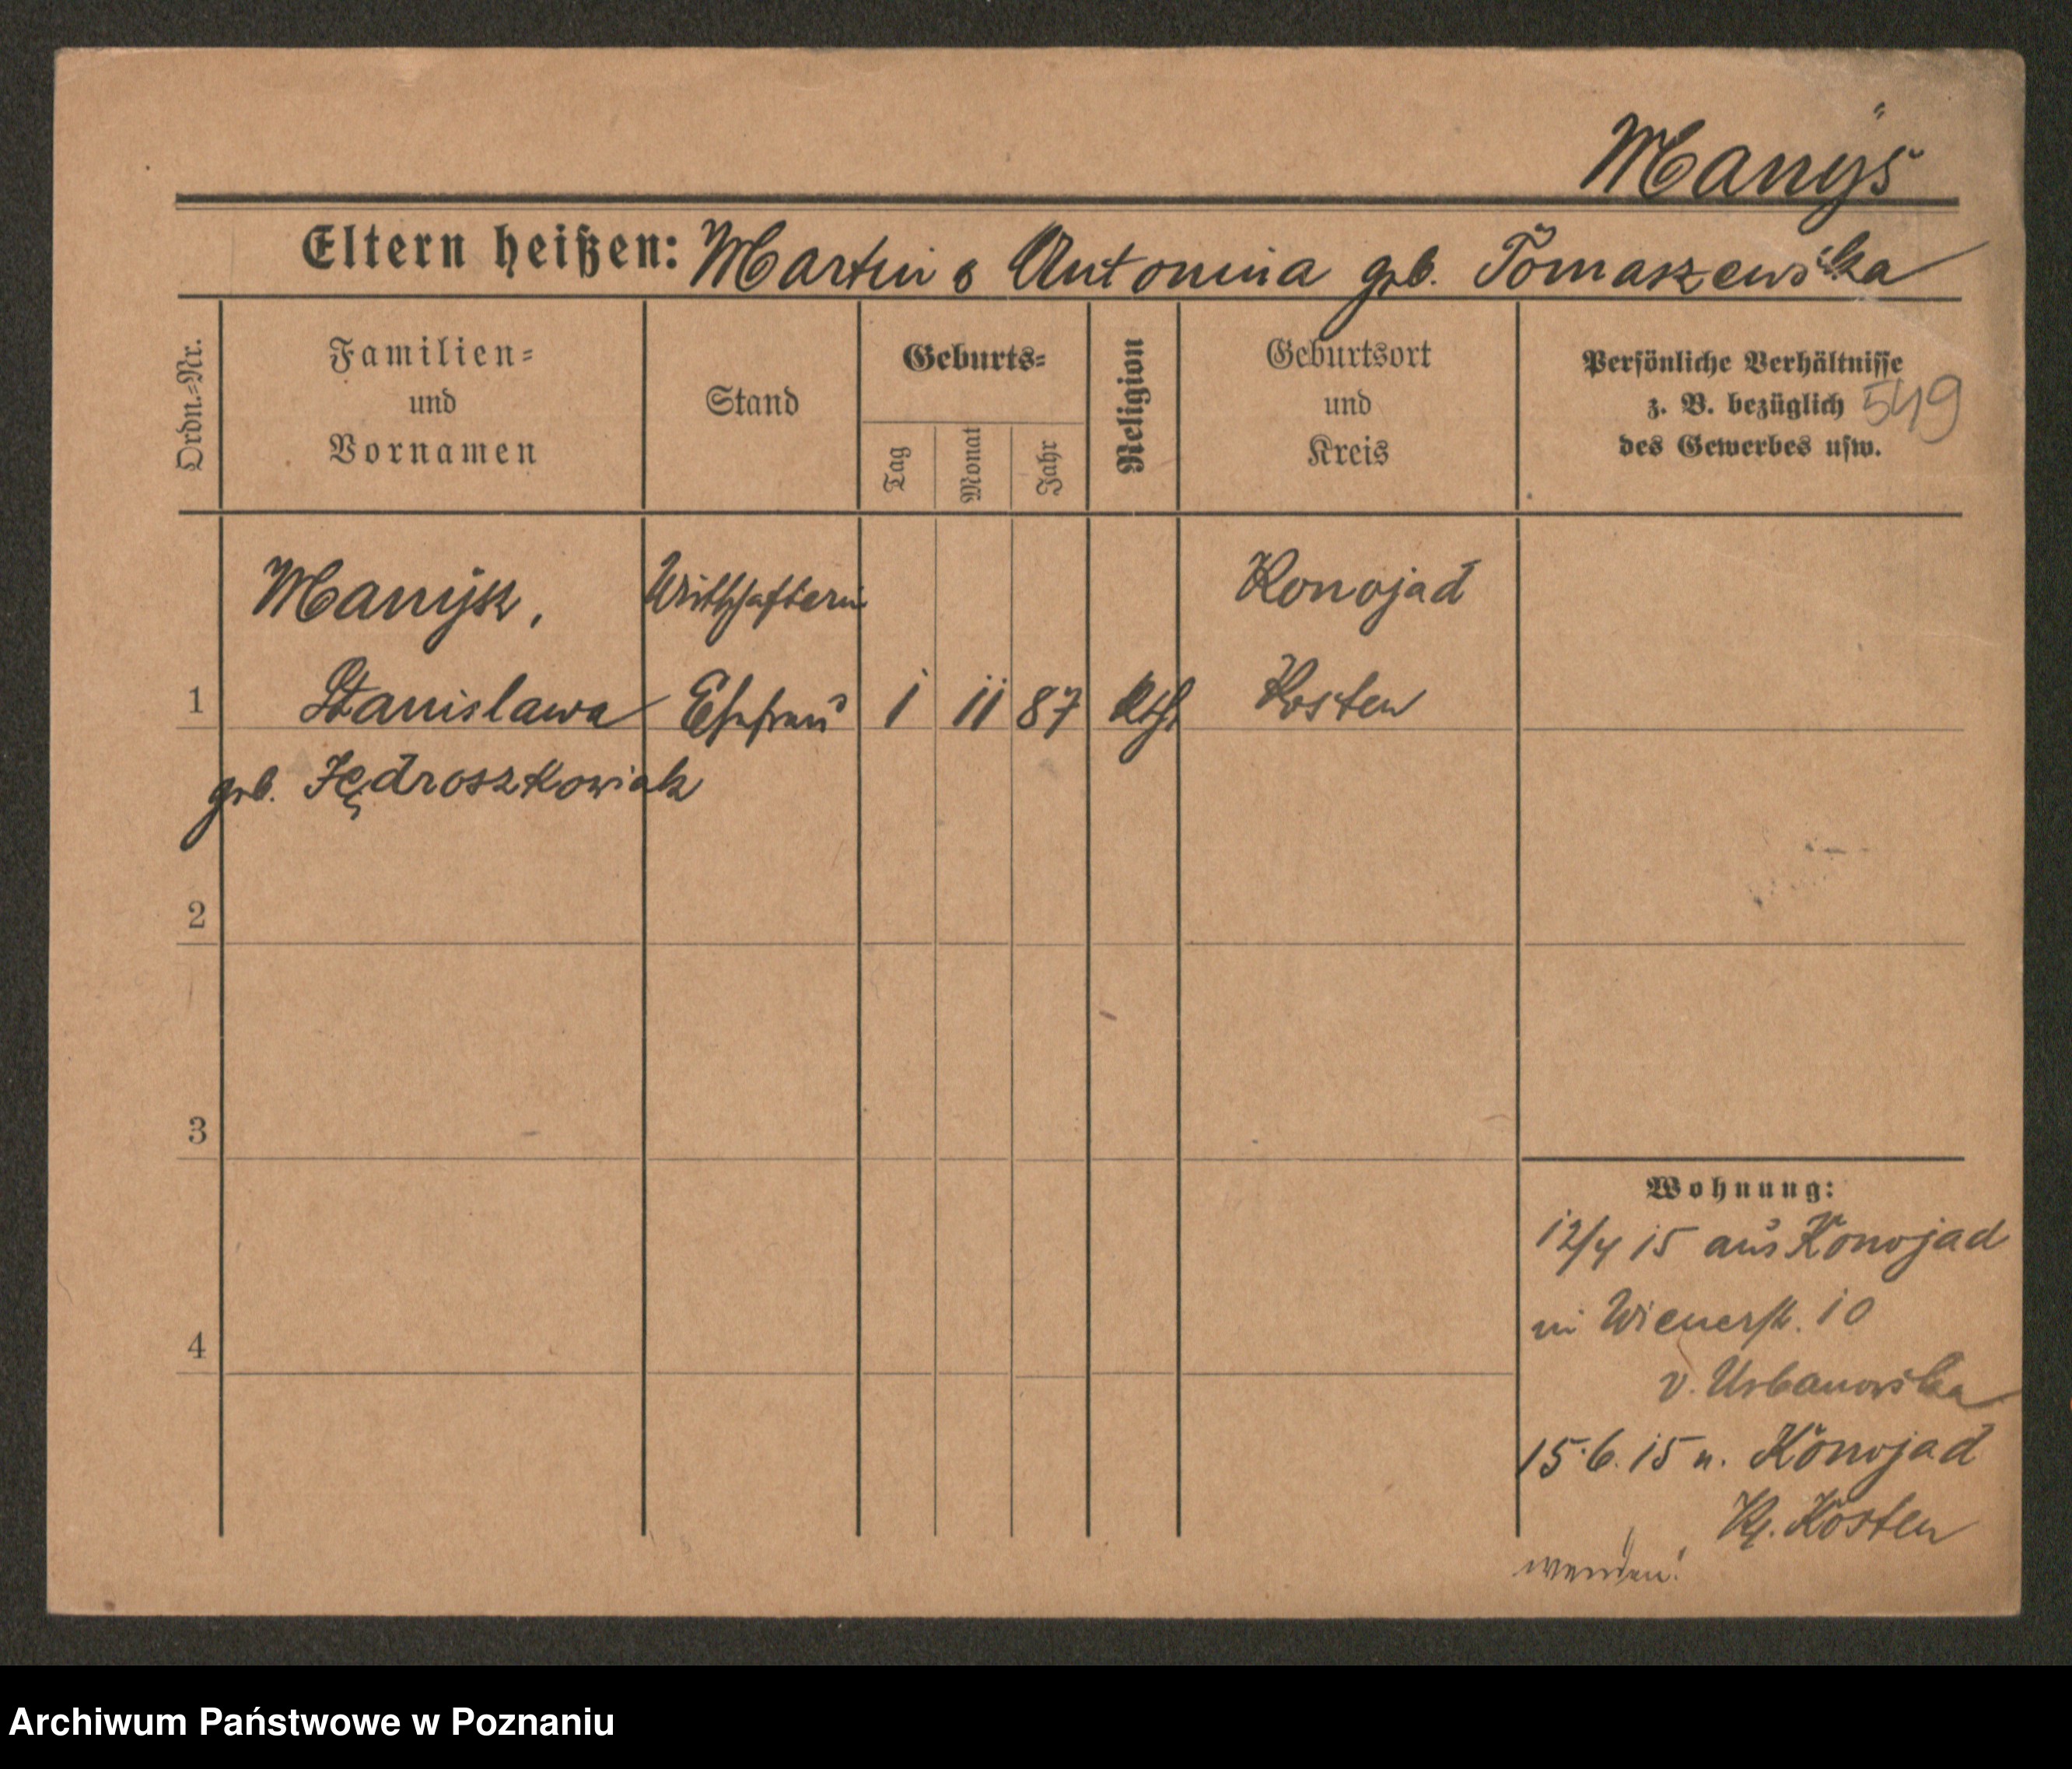 Manys
Eltern heißen: Martin & Antonina geb. Tomaszewska
Ordn.=Nr.
Familien=
und
Vornamen
Stand
Geburts=
Tag
Monat
Jahr
Religion
Geburtsort
und
Kreis
Persönliche Verhältnisse
z. B. bezüglich
des Gewerbes usw.
549
Manysz, Wirthschafterin Konojad
1 Stanislawa Ehefrau 1 11 87 kth Kosten
geb. Jędroszkowiak
2
3
4
Wohnung:
12/4 15 aus Konojad
in Wienerstr. 10
v. Urbanowska
15.6.15 n. Konojad
Kr. Kosten
wenden!
Archiwum Państwowe w Poznaniu